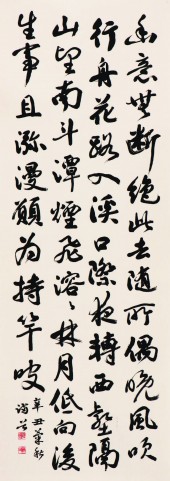 幽意無斷絕此去随所偶晚風吹
行舟花路入溪口際夜轉西壑隔
山望南斗潭煙飛溶溶林月低向後
生事且瀰漫願為持竿叟
辛丑